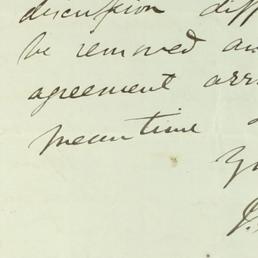 discussion diff
be removed an
agreement arr
meantime
Yo
J.